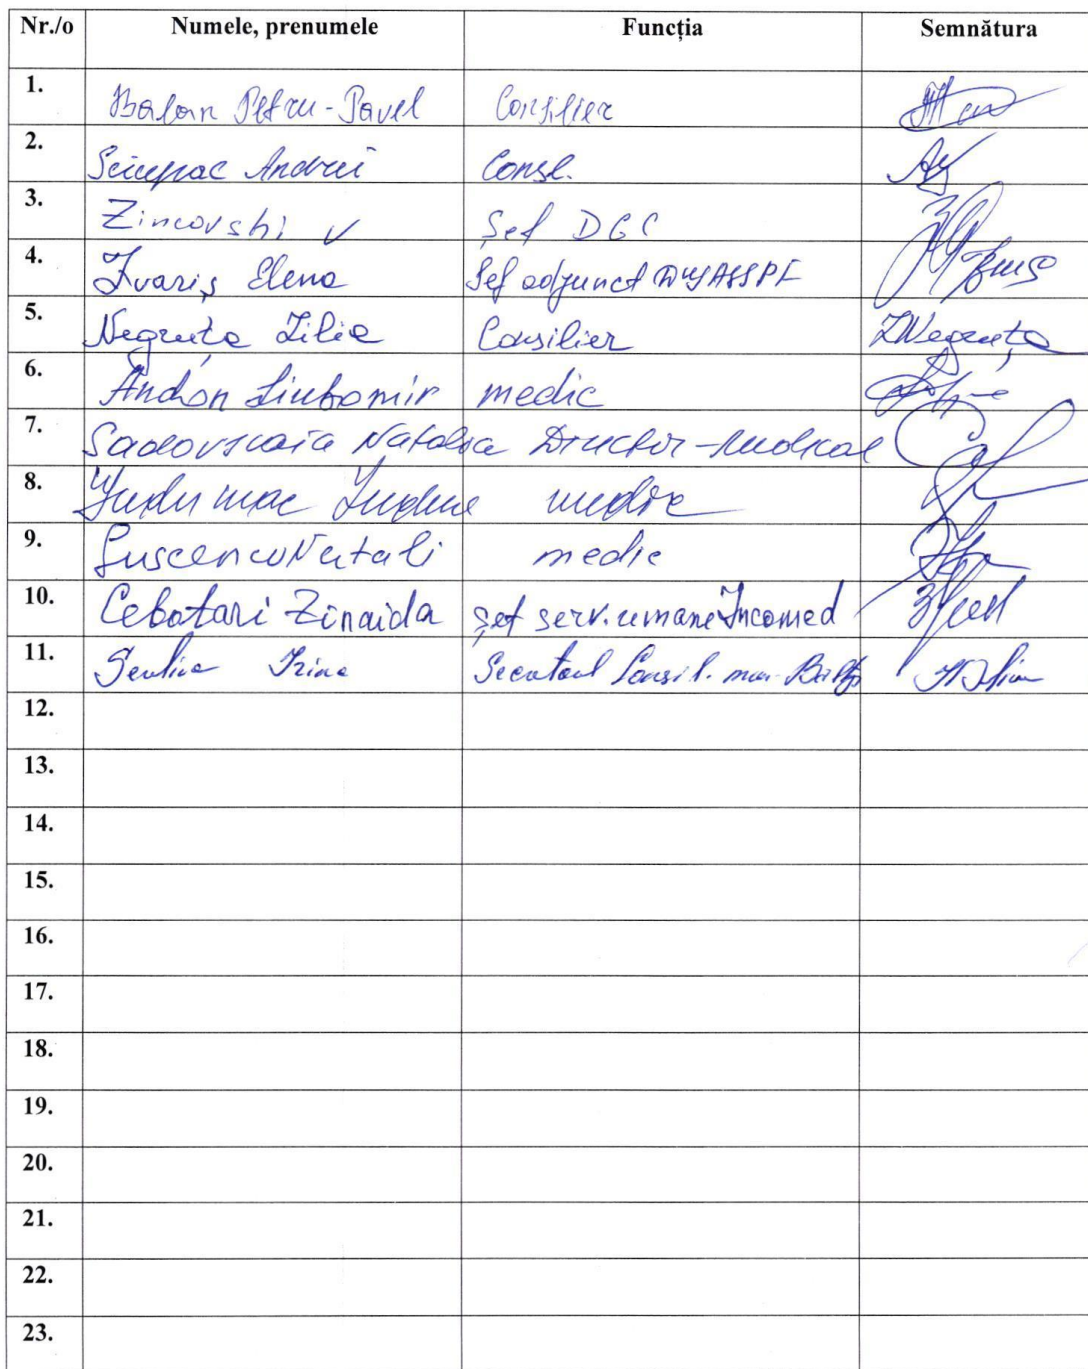 Nr./o Numele, prenumele Funcția Semnătura
1. Balan Petru-Pavel Consilier
2. Andrei Consl.
3. Zincovshi V Șef DGC
4. Elena Șef adjunct
5. Negruța Lilia Consilier ZNegruța
6. Andon Liubomir medic
7. Sadovscaia Natalia Director-medical
8. medic
9. Natali medic
10. Cebotari Zinaida șef serv. umane Incomed
11. Irina
12.
13.
14.
15.
16.
17.
18.
19.
20.
21.
22.
23.